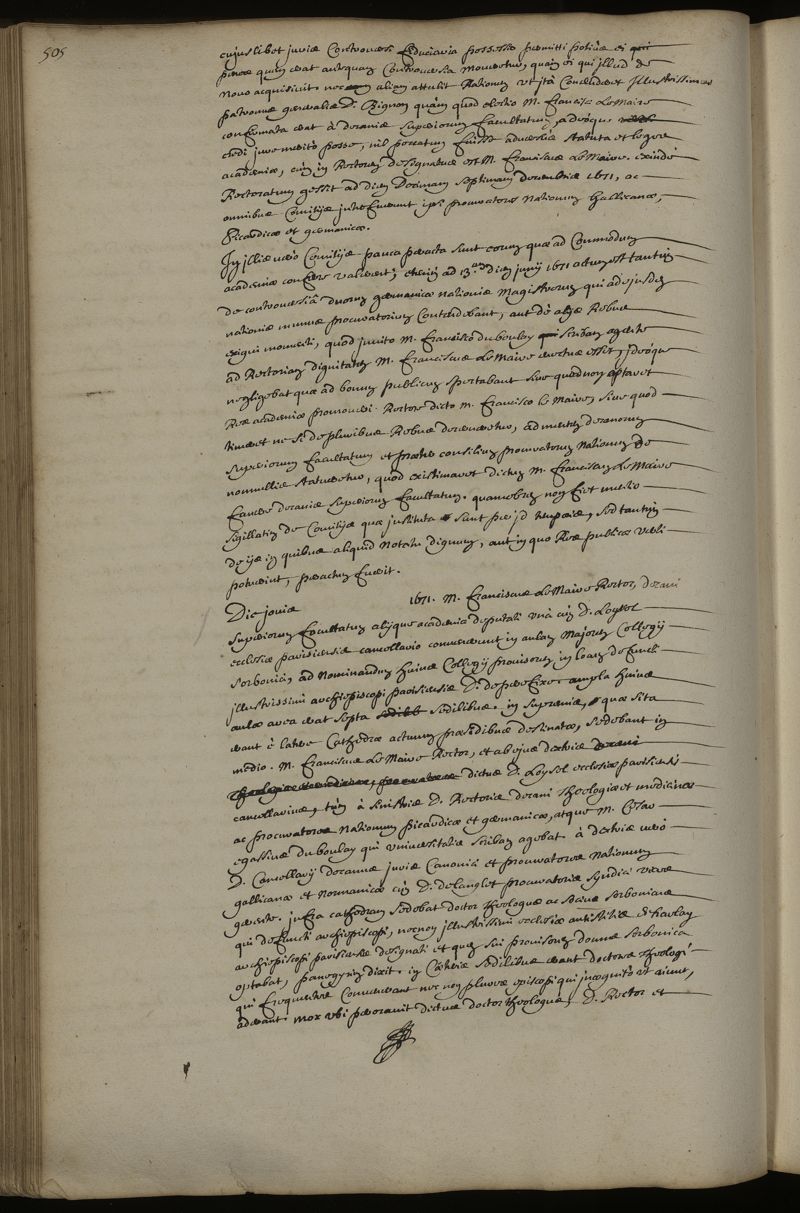 505
cujuslibet juris Controversi fiduciaria possessio permitti potius ei
penes quem erat antequam Controversia moveretur, quam ei qui illud de
Novo acquisivit. nec aliam attulit Rationem ut ita Concluderet Illustrissimus
patronus generalis D. Bignon quàm quod electio M. Francisci LeMaire
confirmata erat à decanis superiorum facultatum, adeoque
credi jure meritò posse, nil peccatum fuisse adversus statuta et leges
academiæ, cùm in Rectorem designatus est M. Franciscus LeMaire. exinde
Rectoratum gessit ad diem Decimam septimam decembris 1671, ac
omnibus Comitijs interfuerunt ipsi procuratores Nationum Gallicanæ,
Picardicæ et germanicæ.
In illis verò Comitijs pauca peracta sunt eorum quæ ad Commodum
academiæ conferre valerent; etenim ad 13.am diem junij 1671 actum est tantùm
de controversiâ duorum germanicæ nationis Magistrorum qui de ejusdem
nationis munus procuratorium Contendebant, aut de alijs Rebus
exigui momenti, quod invito M. Francisco duboulay scriba agente
ad Rectoriam dignitatem M. Franciscus LeMaire evectus esset, ideoque
negligebat quæ ad bonum publicum spectabant sive quod non optaret
Res academiæ promoveri Rectore dicto M. Francisco le Maire, sive quod
timeret ne si de pluribus Rebus decerneretur, ad mentem decanorum
superiorum facultatum et præter consilium procuratorum Nationum de
nonnullis statueretur, quod existimaret dictum M. Franciscum LeMaire
favere decanis superiorum facultatum. quamobrem non fiet mentio
sigillatim de Comitijs quæ instituta sunt per id tempus, sed tantùm
de ijs in quibus aliquid Notatu dignum, aut in quo Rei publicæ
potuerint, peractum fuerit.
Die jovis 1671. M. Franciscus LeMaire Rector, decani
superiorum facultatum alijque academiæ deputati unà cum D. Loysel
ecclesiæ parisiensis cancellario convenerunt in aulam Majorem Collegij
Sorbonici, ad Nominandum hujus Collegij provisorem in locum defuncti
illustrissimi archiepiscopi parisiensis D. de perefixe. ampla hujus
aulæ area erat septa sedilibus. in supremis, quæ sita
erant è latere Cathedræ actuum præsidibus destinatæ, sedebant in
medio. M. Franciscus LeMaire Rector, et ab ejus dextris
dictus D. Loysel ecclesiæ parisiensis
cancellarius, tùm à sinistris D. Rectoris decani theologiæ et medicinæ
ac procuratores Nationum picardicæ et germanicæ, atque M. Cæsar
egassius duboulay qui Universitatis scribam agebat. à dextris verò
D. Cancellarij decanus juris Canonici et procuratores Nationum
gallicanæ et Normanicæ cum D. deLanglet procuratoris syndici vices
gerente. infra cathedram sedebat doctor theologus ac socius sorbonicus
qui defuncti archiepiscopi, necnon illustrissimi ecclesiæ antistitis de harlay
archiepiscopi parisiensis designati et quem sui provisorem domus sorbonica
optabat, panegyrim dixit. in Cæteris sedilibus erant doctores theologi
qui frequentes Convenerant nec non plures episcopi qui incognito ut aiunt,
aderant. mox ubi peroravit dictus doctor theologus, D. Rector et